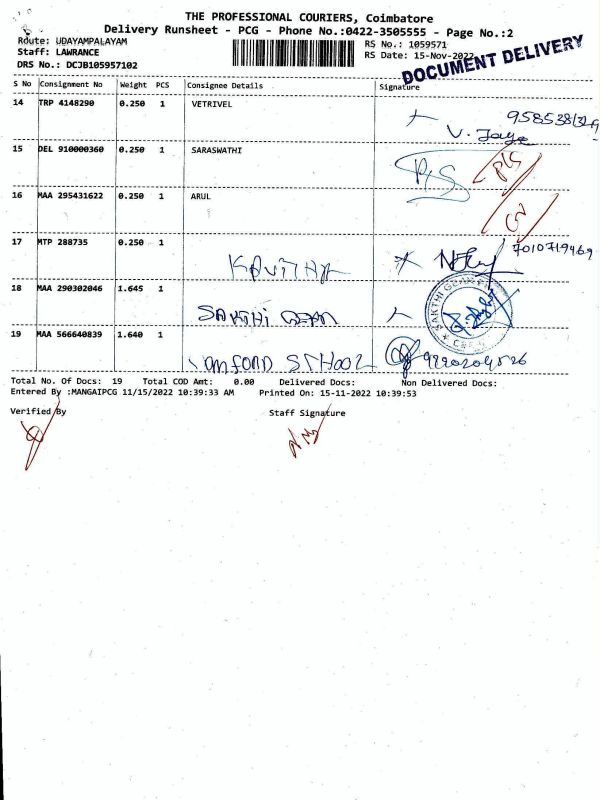 THE PROFESSIONAL COURIERS, Coimbatore
Delivery Runsheet - PCG - Phone No.:0422-3505555 - Page No.:2
Route: UDAYAMPALAYAM RS No.: 1059571
Staff: LAWRANCE RS Date: 15-Nov-2022
DRS No.: DCJB105957102 DOCUMENT DELIVERY
S No Consignment No Weight PCS Consignee Details Signature
14 TRP 4148290 0.250 1 VETRIVEL
V. Jaya
15 DEL 910000360 0.250 1 SARASWATHI
16 MAA 295431622 0.250 1 ARUL
17 MTP 288735 0.250 1
KAVITHA 7010719469
18 MAA 290302046 1.645 1
SAKTHI GEAR SAKTHI GEAR
19 MAA 566640839 1.640 1
SCHOOL
Total No. Of Docs: 19 Total COD Amt: 0.00 Delivered Docs: Non Delivered Docs:
Entered By :MANGAIPCG 11/15/2022 10:39:33 AM Printed On: 15-11-2022 10:39:53
Verified By Staff Signature